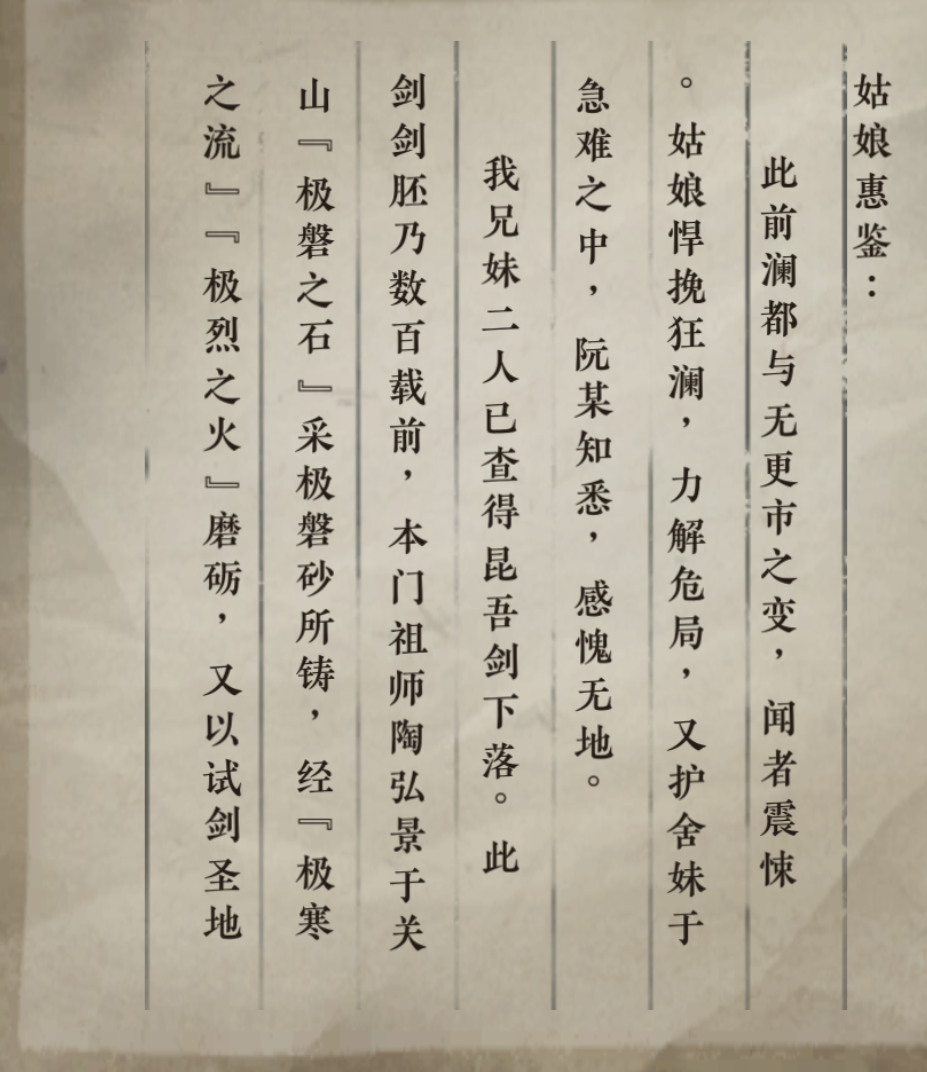 姑娘惠鉴：
此前澜都与无更市之变，闻者震悚
。姑娘悍挽狂澜，力解危局，又护舍妹于
急难之中，阮某知悉，感愧无地。
我兄妹二人已查得昆吾剑下落。此
剑剑胚乃数百载前，本门祖师陶弘景于关
山『极磐之石』采极磐砂所铸，经『极寒
之流』『极烈之火』磨砺，又以试剑圣地